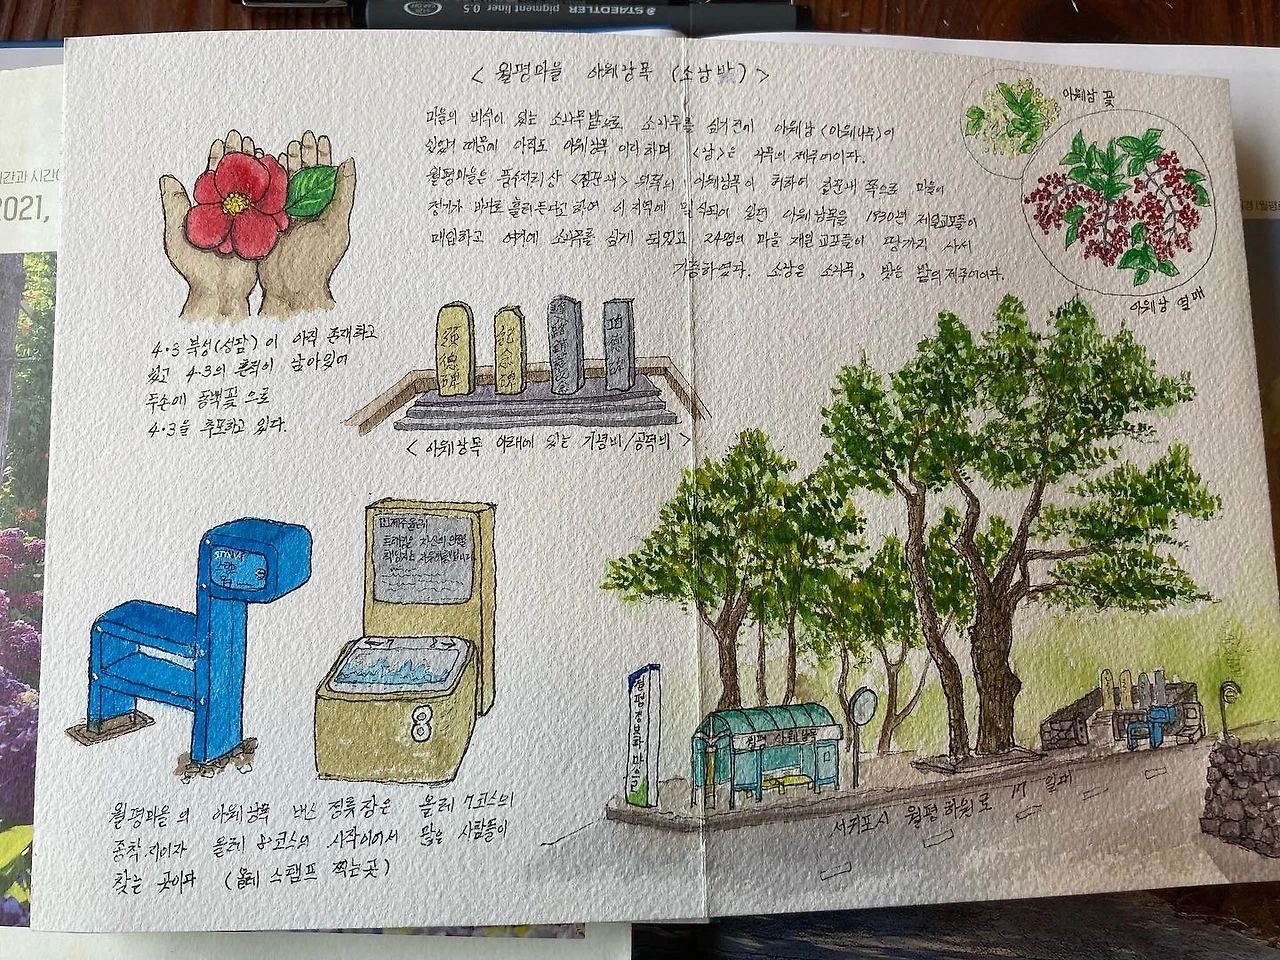 STAEDTLER pigment liner 0.5
2021,
< 월평마을 아왜낭목 (소낭밧) >
아왜낭 꽃
마을의 비석이 있는 소나무밭으로 소나무를 심기전에 아왜낭 (아왜나무)이
있었기 때문에 아직도 아왜낭목 이라하며 <낭>은 나무의 제주어이다.
월평마을은 풍수지리상 의 아왜낭목이 허하여 쪽으로 마을의
정기가 바다로 흘러든다고 하여 이 지역에 월평 아왜낭목을 1930년 재일교포들이
매입하고 여기에 소나무를 심게 되었고 24명의 마을 재일교포들이 땅까지 사서
기증하였다. 소낭은 소나무, 밧은 밭의 제주어이다.
아왜낭 열매
4·3 북성(성담)이 아직 존재하고
있고 4·3의 흔적이 남아있어
두손에 동백꽃으로
4·3을 추모하고 있다.
頌德碑
紀念碑
功德碑
< 아왜낭목 아래에 있는 기념비/공덕비 >
제주올레
8
월평마을의 아왜낭목 버스 정류장은 올레 7코스의
종착지이자 올레 8코스의 시작이어서 많은 사람들이
찾는 곳이다 (올레 스탬프 찍는곳)
월평 아왜낭목
서귀포시 월평하원로 17 일대